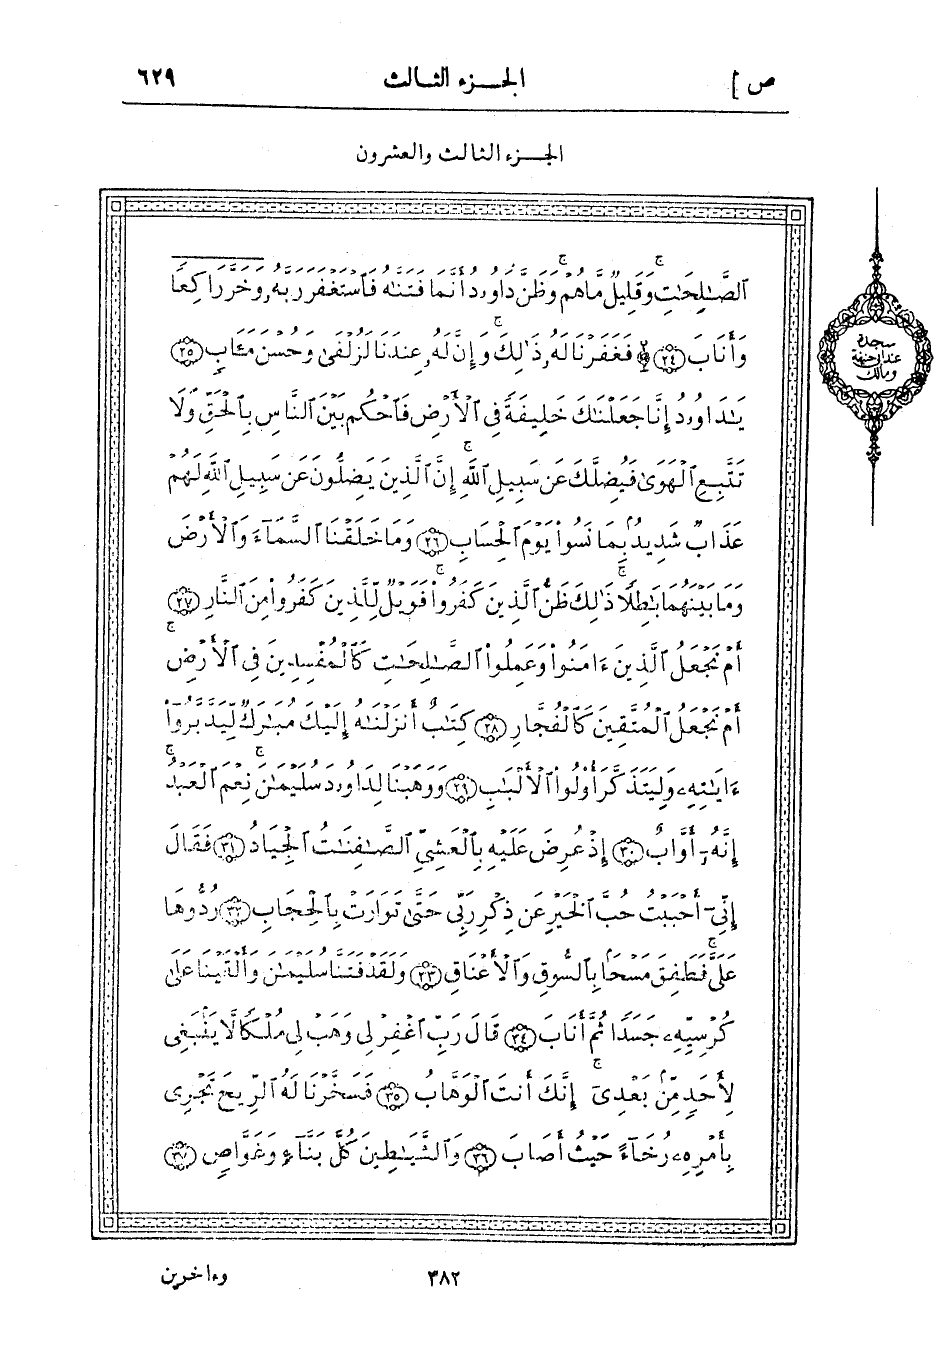 ص ] الجزء الثالث ٦٢٩
الجزء الثالث والعشرون
ٱلصَّـٰلِحَـٰتِ وَقَلِيلٌ مَّا هُمْ ۗ وَظَنَّ دَاوُۥدُ أَنَّمَا فَتَنَّـٰهُ فَٱسْتَغْفَرَ رَبَّهُۥ وَخَرَّ رَاكِعًا
وَأَنَابَ ۩ (٢٤) فَغَفَرْنَا لَهُۥ ذَٰلِكَ ۖ وَإِنَّ لَهُۥ عِندَنَا لَزُلْفَىٰ وَحُسْنَ مَـَٔابٍ (٢٥)
يَـٰدَاوُۥدُ إِنَّا جَعَلْنَـٰكَ خَلِيفَةً فِى ٱلْأَرْضِ فَٱحْكُم بَيْنَ ٱلنَّاسِ بِٱلْحَقِّ وَلَا
تَتَّبِعِ ٱلْهَوَىٰ فَيُضِلَّكَ عَن سَبِيلِ ٱللَّهِ ۚ إِنَّ ٱلَّذِينَ يَضِلُّونَ عَن سَبِيلِ ٱللَّهِ لَهُمْ
عَذَابٌ شَدِيدٌۢ بِمَا نَسُوا۟ يَوْمَ ٱلْحِسَابِ (٢٦) وَمَا خَلَقْنَا ٱلسَّمَآءَ وَٱلْأَرْضَ
وَمَا بَيْنَهُمَا بَـٰطِلًا ۚ ذَٰلِكَ ظَنُّ ٱلَّذِينَ كَفَرُوا۟ ۚ فَوَيْلٌ لِّلَّذِينَ كَفَرُوا۟ مِنَ ٱلنَّارِ (٢٧)
أَمْ نَجْعَلُ ٱلَّذِينَ ءَامَنُوا۟ وَعَمِلُوا۟ ٱلصَّـٰلِحَـٰتِ كَٱلْمُفْسِدِينَ فِى ٱلْأَرْضِ
أَمْ نَجْعَلُ ٱلْمُتَّقِينَ كَٱلْفُجَّارِ (٢٨) كِتَـٰبٌ أَنزَلْنَـٰهُ إِلَيْكَ مُبَـٰرَكٌ لِّيَدَّبَّرُوٓا۟
ءَايَـٰتِهِۦ وَلِيَتَذَكَّرَ أُو۟لُوا۟ ٱلْأَلْبَـٰبِ (٢٩) وَوَهَبْنَا لِدَاوُۥدَ سُلَيْمَـٰنَ ۚ نِعْمَ ٱلْعَبْدُ ۖ
إِنَّهُۥٓ أَوَّابٌ (٣٠) إِذْ عُرِضَ عَلَيْهِ بِٱلْعَشِىِّ ٱلصَّـٰفِنَـٰتُ ٱلْجِيَادُ (٣١) فَقَالَ
إِنِّىٓ أَحْبَبْتُ حُبَّ ٱلْخَيْرِ عَن ذِكْرِ رَبِّى حَتَّىٰ تَوَارَتْ بِٱلْحِجَابِ (٣٢) رُدُّوهَا
عَلَىَّ ۖ فَطَفِقَ مَسْحًۢا بِٱلسُّوقِ وَٱلْأَعْنَاقِ (٣٣) وَلَقَدْ فَتَنَّا سُلَيْمَـٰنَ وَأَلْقَيْنَا عَلَىٰ
كُرْسِيِّهِۦ جَسَدًا ثُمَّ أَنَابَ (٣٤) قَالَ رَبِّ ٱغْفِرْ لِى وَهَبْ لِى مُلْكًا لَّا يَنۢبَغِى
لِأَحَدٍ مِّنۢ بَعْدِىٓ ۖ إِنَّكَ أَنتَ ٱلْوَهَّابُ (٣٥) فَسَخَّرْنَا لَهُ ٱلرِّيحَ تَجْرِى
بِأَمْرِهِۦ رُخَآءً حَيْثُ أَصَابَ (٣٦) وَٱلشَّيَـٰطِينَ كُلَّ بَنَّآءٍ وَغَوَّاصٍ (٣٧)
سجدة
عند ابي حنيفة
ومالك
٣٨٢ وءاخرين